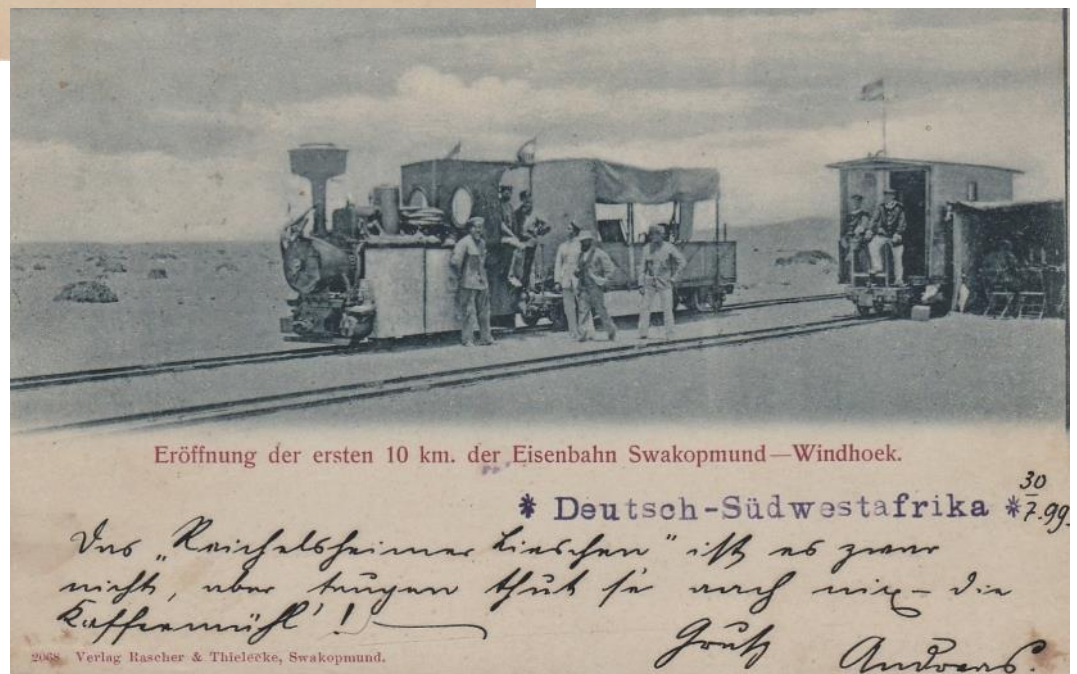 Eröffnung der ersten 10 km. der Eisenbahn Swakopmund—Windhoek.
* Deutsch-Südwestafrika * 30/7.99.
Das „Reichelsheimer Lieschen" ist es zwar
nicht, aber taugen thut se aach nix – die
Kaffeemühl'!
Gruß Andreas.
2068 Verlag Rascher & Thielecke, Swakopmund.